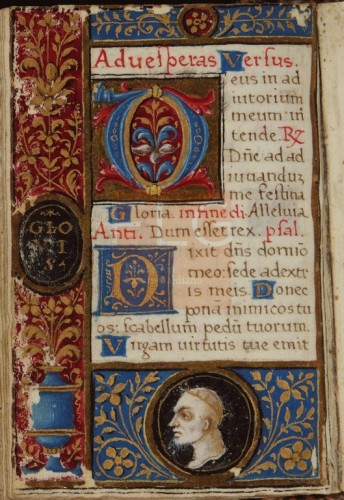 Ad uesperas Versus.
Deus in ad
iutorium
meum in
tende. R
Dñe ad ad
iuuanduz
me festina
Gloria. in fine di. Alleluia
Anti. Dum esset rex. psal.
Dixit dñs domiño
meo: sede a dext
ris meis Donec
ponã inimicos tu
os: scabellum pedũ tuorum.
Virgam uirtutis tue emit
GLO